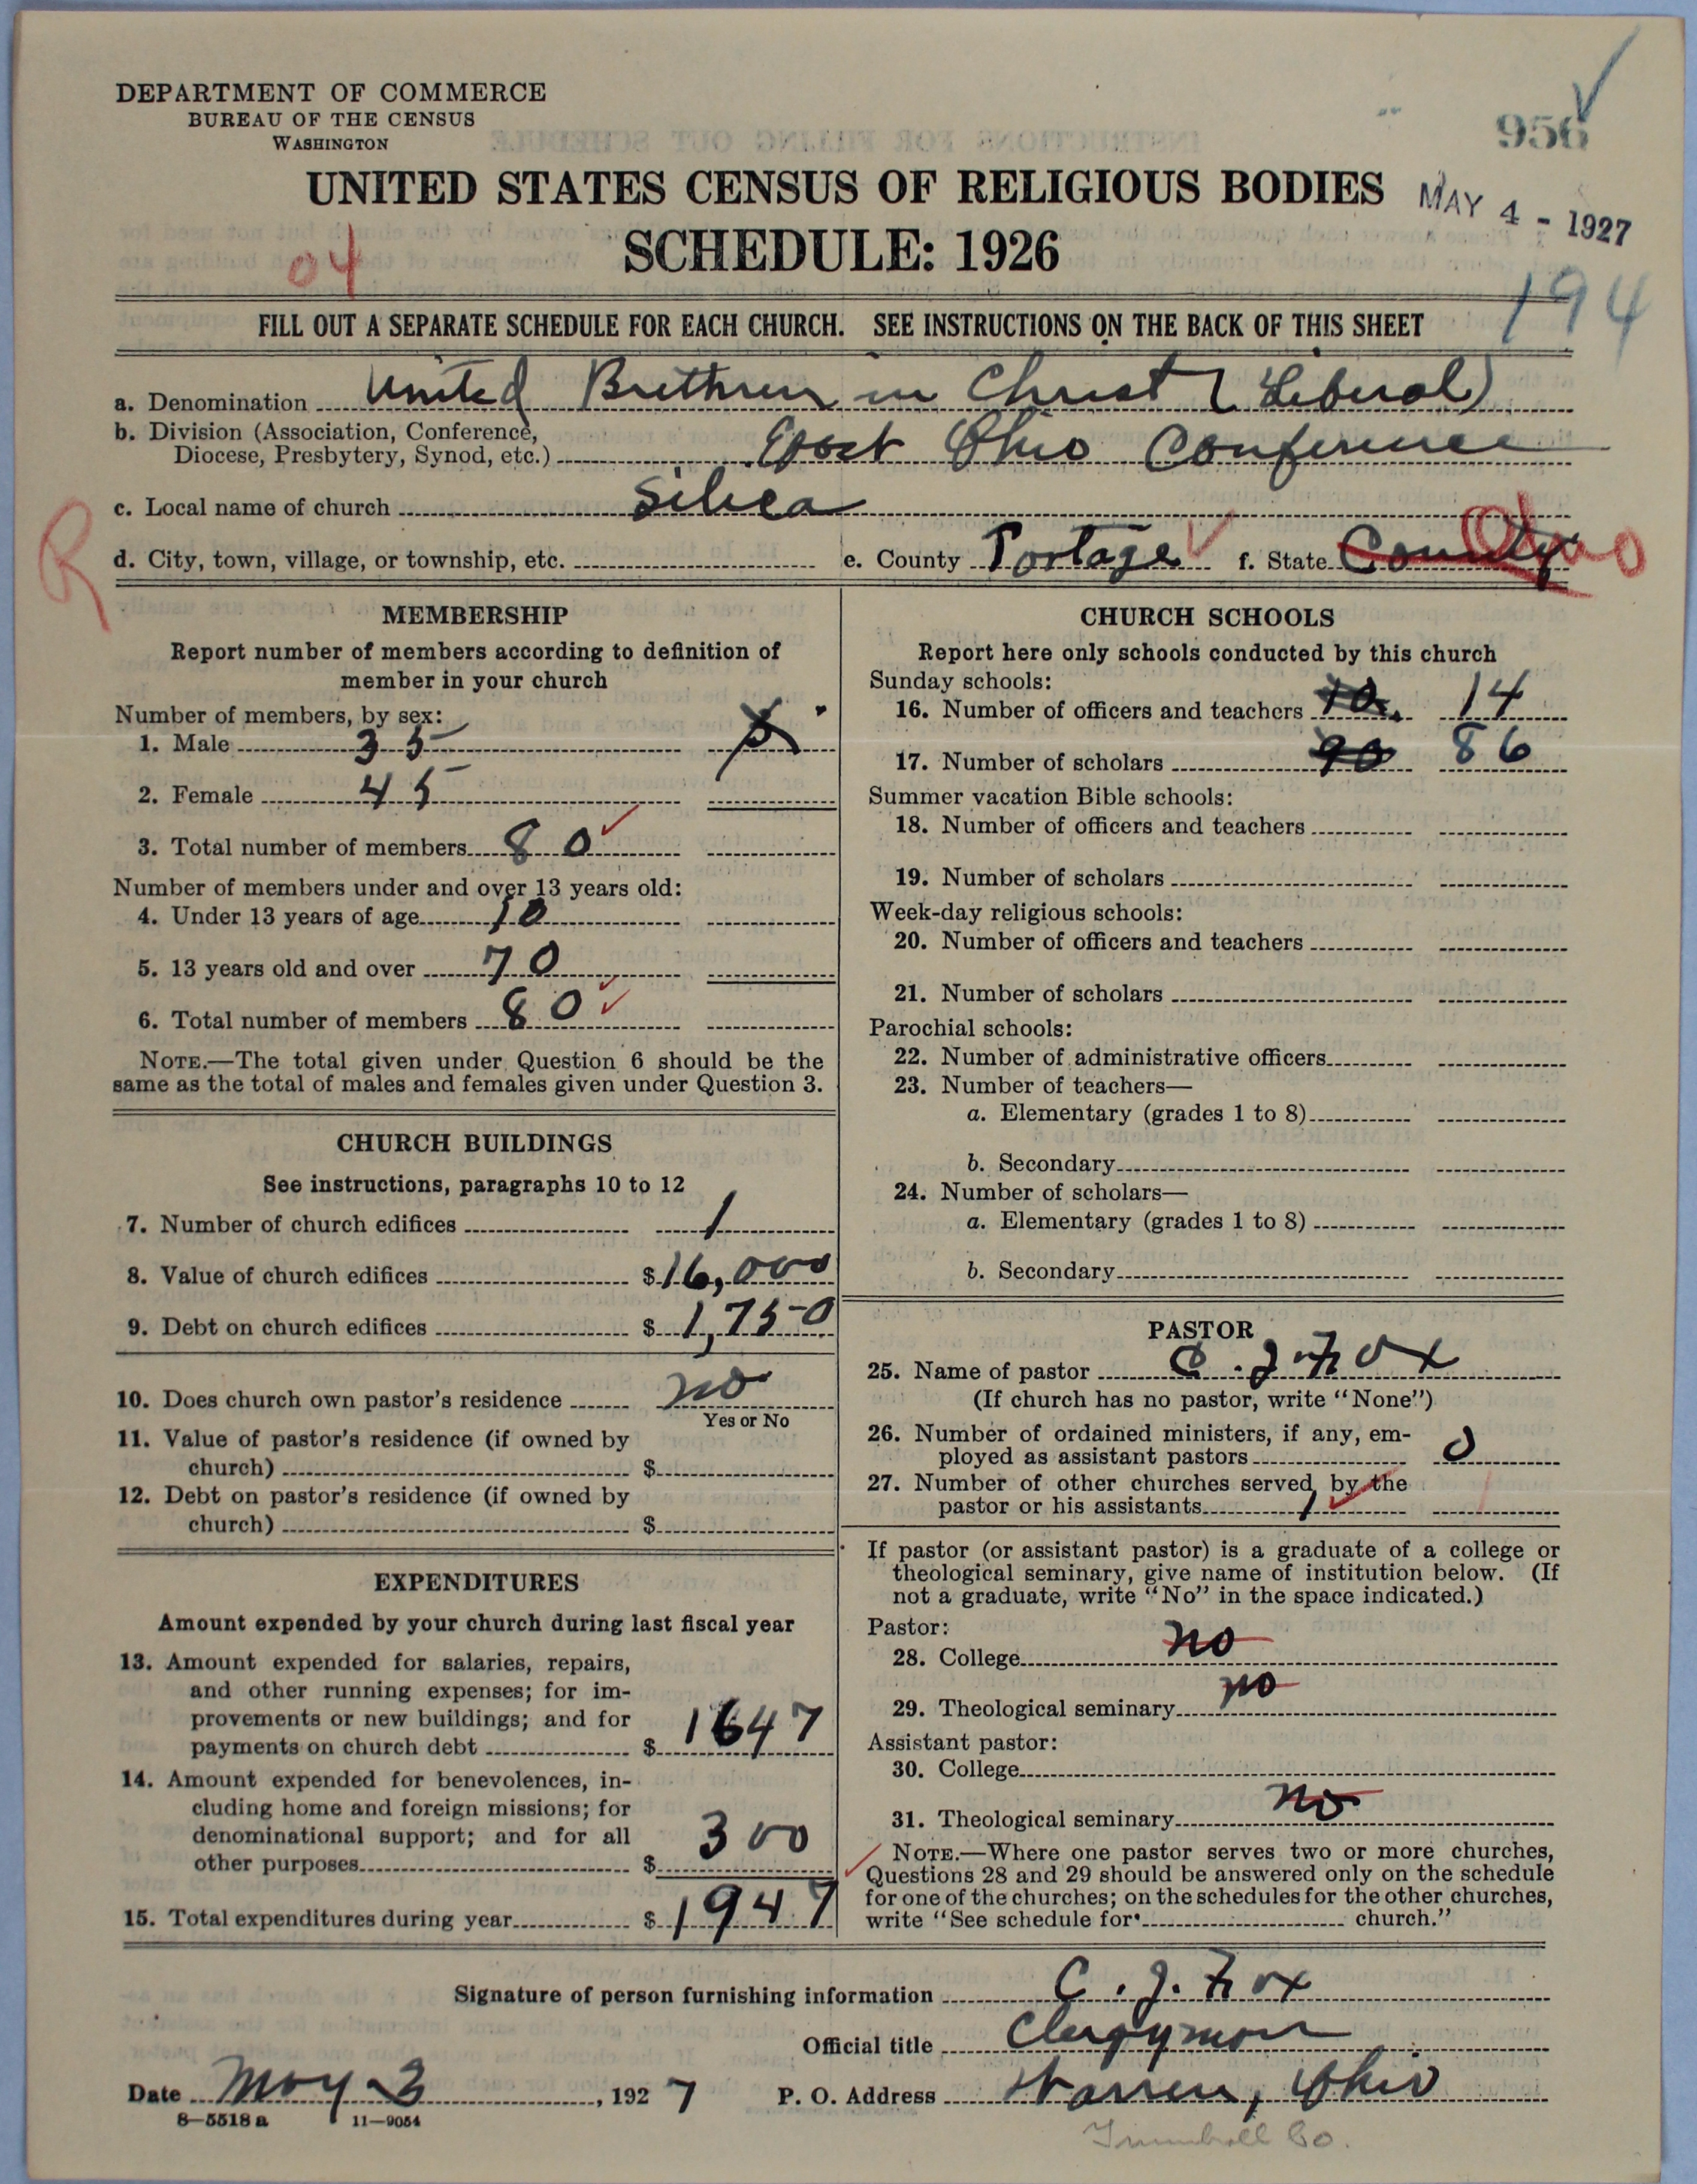 DEPARTMENT OF COMMERCE
BUREAU OF THE CENSUS
WASHINGTON
956
UNITED STATES CENSUS OF RELIGIOUS BODIES
MAY 4 - 1927
SCHEDULE: 1926
04
194
FILL OUT A SEPARATE SCHEDULE FOR EACH CHURCH. SEE INSTRUCTIONS ON THE BACK OF THIS SHEET
a. Denomination United Brethren in Christ (Liberal)
b. Division (Association, Conference,
Diocese, Presbytery, Synod, etc.) East Ohio Conference
c. Local name of church Silica
R
d. City, town, village, or township, etc. e. County Portage f. State County Ohio
MEMBERSHIP
Report number of members according to definition of
member in your church
Number of members, by sex:
1. Male 35
2. Female 45
3. Total number of members 80
Number of members under and over 13 years old:
4. Under 13 years of age 10
5. 13 years old and over 70
6. Total number of members 80
NOTE.—The total given under Question 6 should be the
same as the total of males and females given under Question 3.
CHURCH BUILDINGS
See instructions, paragraphs 10 to 12
7. Number of church edifices 1
8. Value of church edifices $ 16,000
9. Debt on church edifices $ 1,750
10. Does church own pastor's residence no
Yes or No
11. Value of pastor's residence (if owned by
church) $
12. Debt on pastor's residence (if owned by
church) $
EXPENDITURES
Amount expended by your church during last fiscal year
13. Amount expended for salaries, repairs,
and other running expenses; for im-
provements or new buildings; and for
payments on church debt $ 1647
14. Amount expended for benevolences, in-
cluding home and foreign missions; for
denominational support; and for all
other purposes $ 300
15. Total expenditures during year $ 1947
CHURCH SCHOOLS
Report here only schools conducted by this church
Sunday schools:
16. Number of officers and teachers 10. 14
17. Number of scholars 90 86
Summer vacation Bible schools:
18. Number of officers and teachers
19. Number of scholars
Week-day religious schools:
20. Number of officers and teachers
21. Number of scholars
Parochial schools:
22. Number of administrative officers
23. Number of teachers—
a. Elementary (grades 1 to 8)
b. Secondary
24. Number of scholars—
a. Elementary (grades 1 to 8)
b. Secondary
PASTOR
25. Name of pastor C. J. Fox
(If church has no pastor, write "None")
26. Number of ordained ministers, if any, em-
ployed as assistant pastors 0
27. Number of other churches served by the
pastor or his assistants 1 1
If pastor (or assistant pastor) is a graduate of a college or
theological seminary, give name of institution below. (If
not a graduate, write "No" in the space indicated.)
Pastor:
28. College no
29. Theological seminary no
Assistant pastor:
30. College
31. Theological seminary no
NOTE.—Where one pastor serves two or more churches,
Questions 28 and 29 should be answered only on the schedule
for one of the churches; on the schedules for the other churches,
write "See schedule for church."
Signature of person furnishing information C. J. Fox
Official title Clergyman
Date May 3, 1927 P. O. Address Warren, Ohio
8—5518 a 11—9054
Trumbull Co.